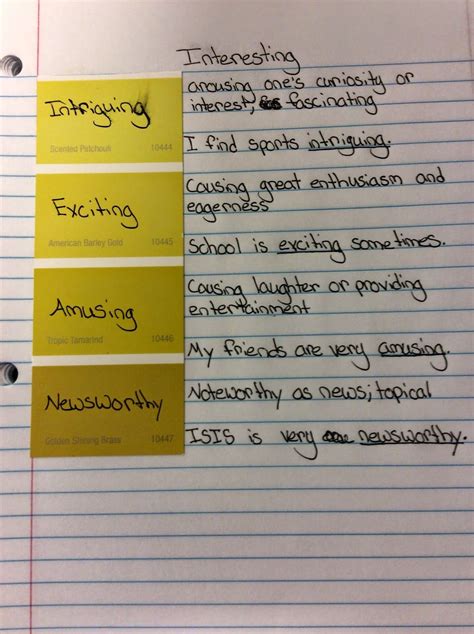 Interesting
Intriguing
Scented Patchouli 10444
arousing one's curiosity or
interest; fascinating
I find sports intriguing.
Exciting
American Barley Gold 10445
Causing great enthusiasm and
eagerness
School is exciting sometimes.
Amusing
Tropic Tamarind 10446
Causing laughter or providing
entertainment
My friends are very amusing.
Newsworthy
Golden Shining Brass 10447
Noteworthy as news; topical
ISIS is very newsworthy.